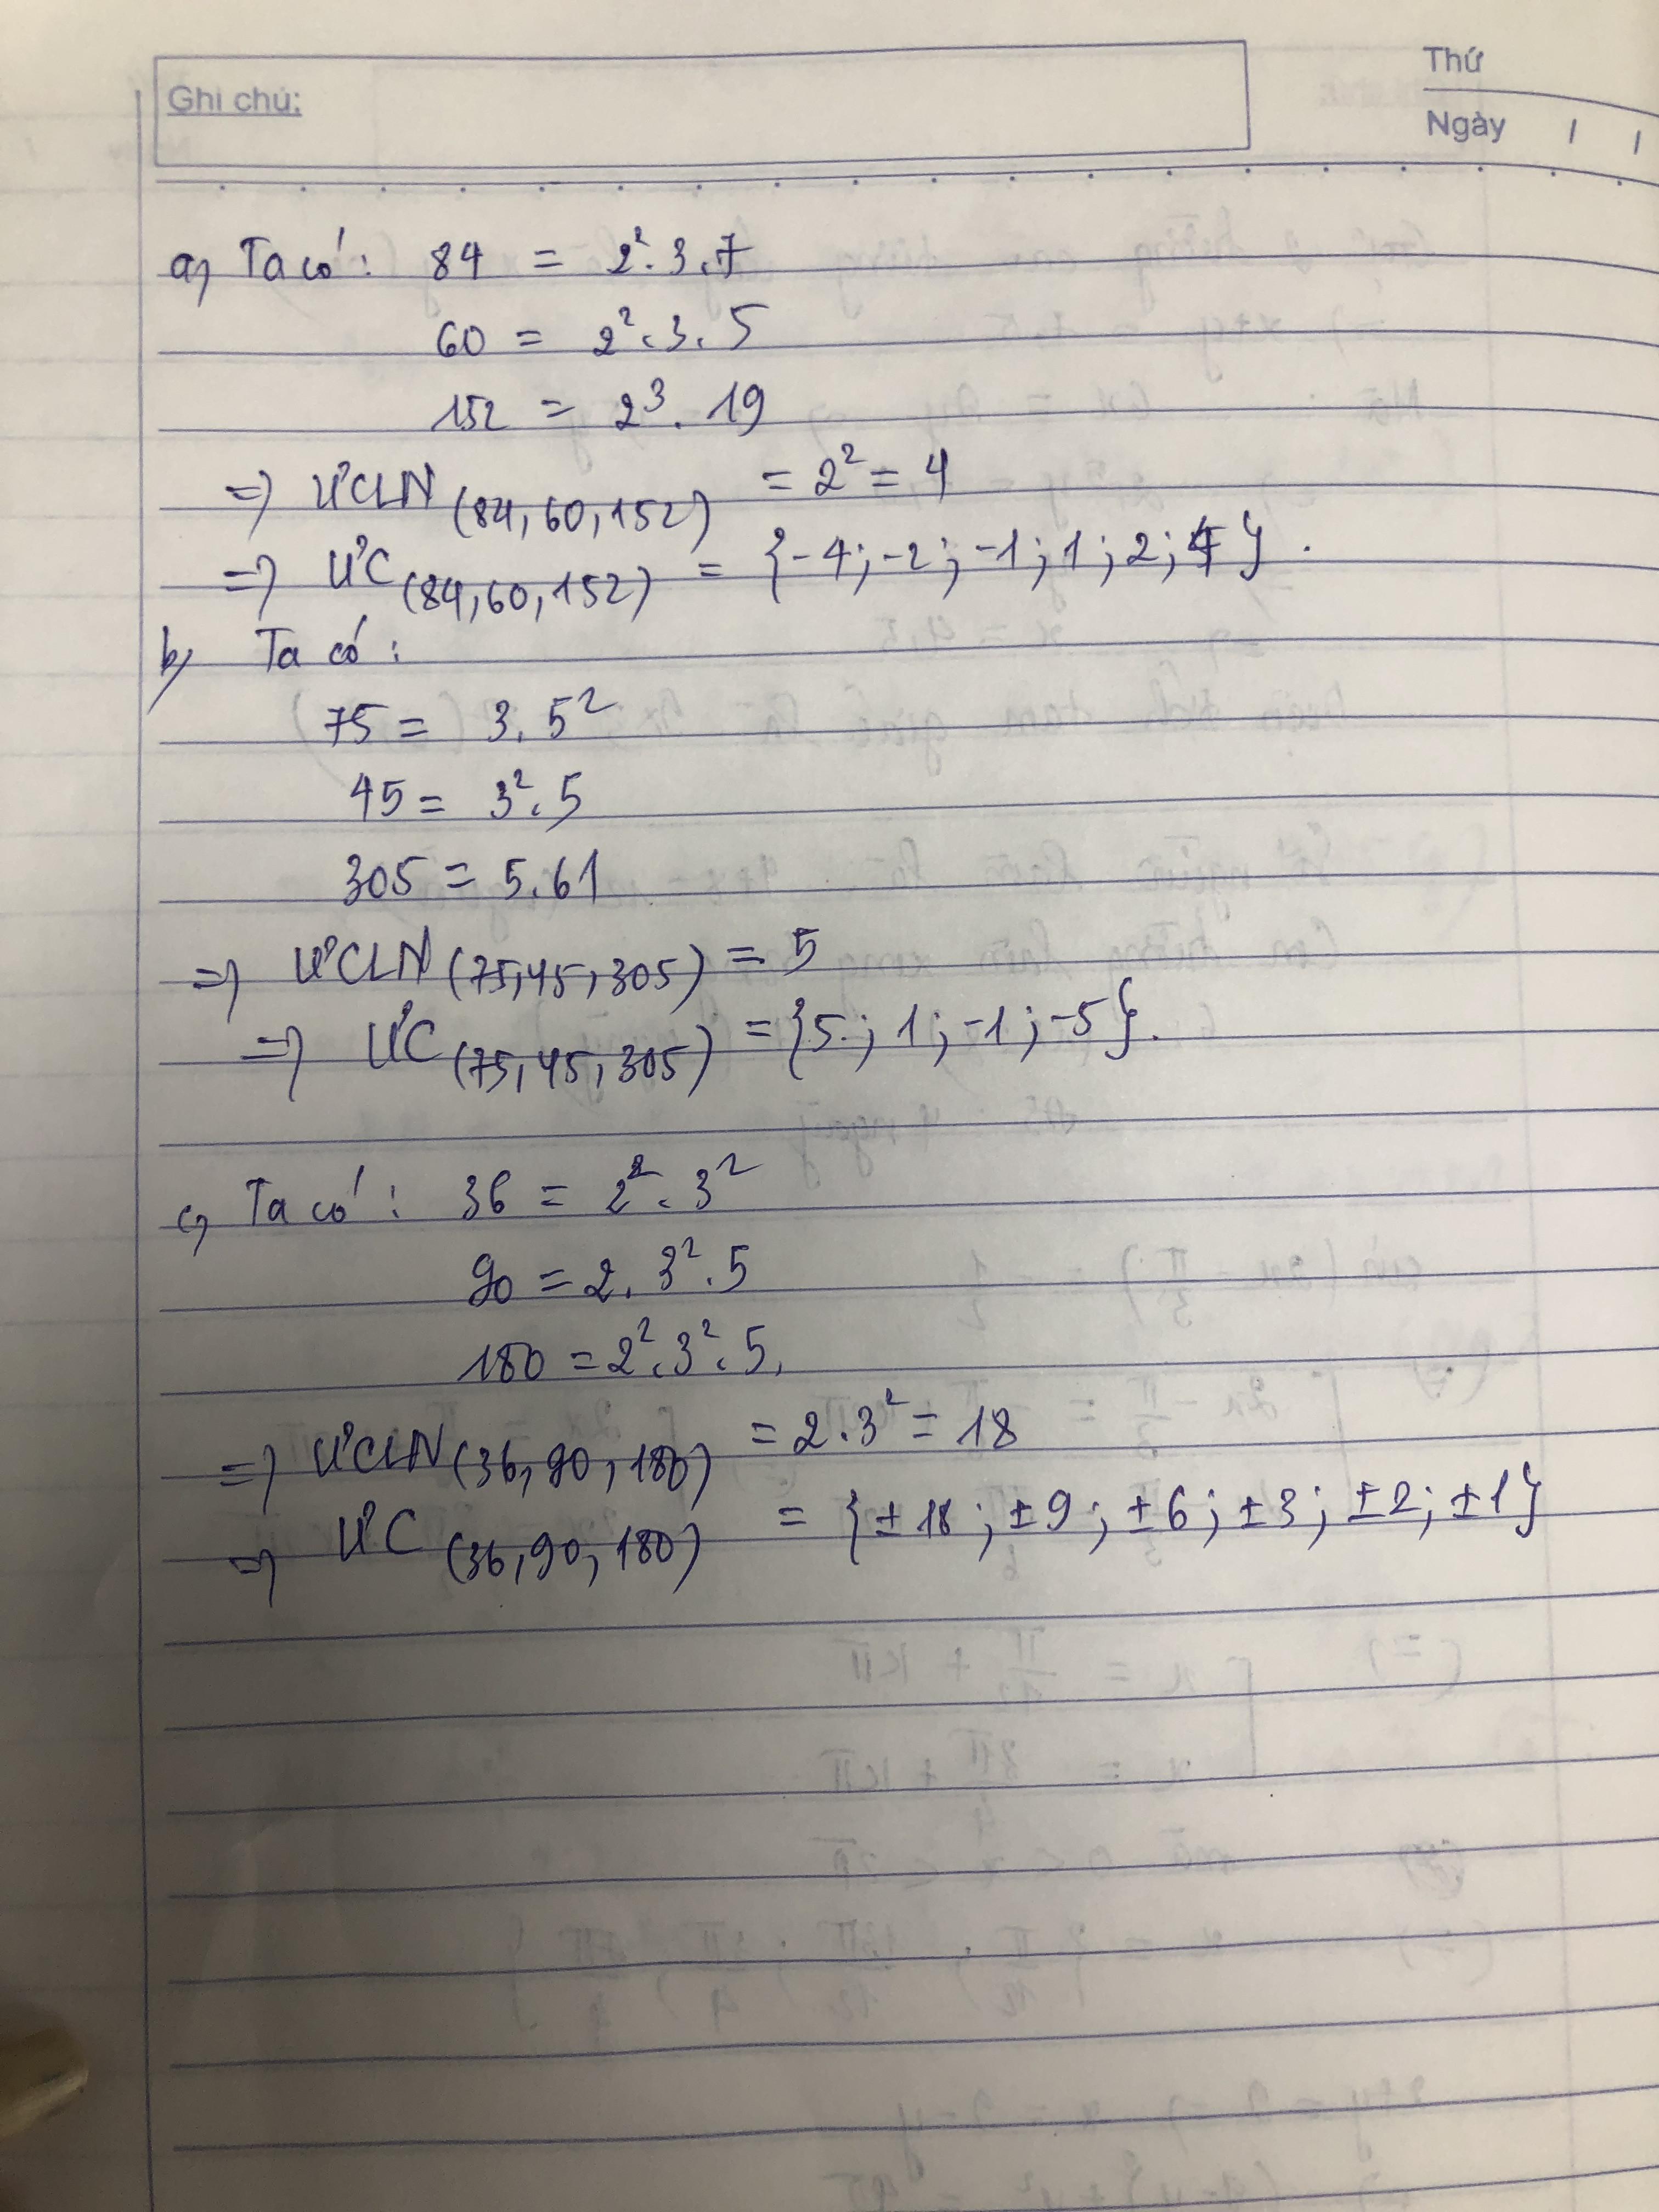 Ghi chú:
Thứ
Ngày / /
a, Ta có: 84 = 2². 3. 7
60 = 2². 3. 5
152 = 2³. 19
=> ƯCLN (84, 60, 152) = 2² = 4
=> ƯC (84, 60, 152) = {-4; -2; -1; 1; 2; 4}.
b, Ta có:
75 = 3. 5²
45 = 3². 5
305 = 5. 61
=> ƯCLN (75, 45, 305) = 5
=> ƯC (75, 45, 305) = {5; 1; -1; -5}.
c, Ta có: 36 = 2². 3²
90 = 2. 3². 5
180 = 2². 3². 5.
=> ƯCLN (36, 90, 180) = 2. 3² = 18
=> ƯC (36, 90, 180) = {±18; ±9; ±6; ±3; ±2; ±1}